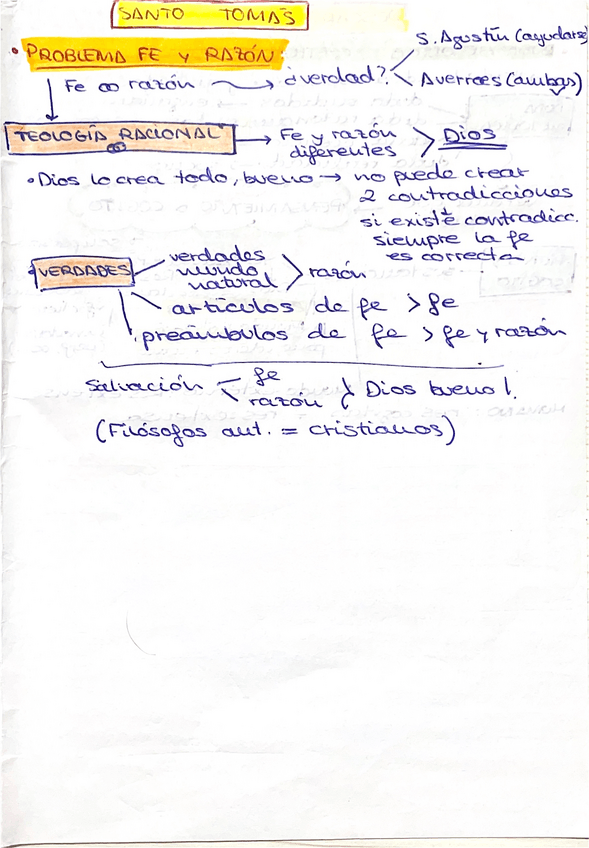 SANTO TOMÁS
• PROBLEMA FE Y RAZÓN:
S. Agustín (ayudarse)
Fe ∞ razón → ¿verdad? <
Averroes (ambas)
TEOLOGÍA RACIONAL → Fe y razón diferentes > Dios
∞
• Dios lo crea todo, bueno → no puede crear
2 contradicciones
si existe contradicc.
siempre la fe
es correcta
• VERDADES
verdades
mundo
natural > razón
artículos de fe > fe
preámbulos de fe > fe y razón
Salvación < fe
razón } Dios bueno!
(Filósofos ant. = cristianos)